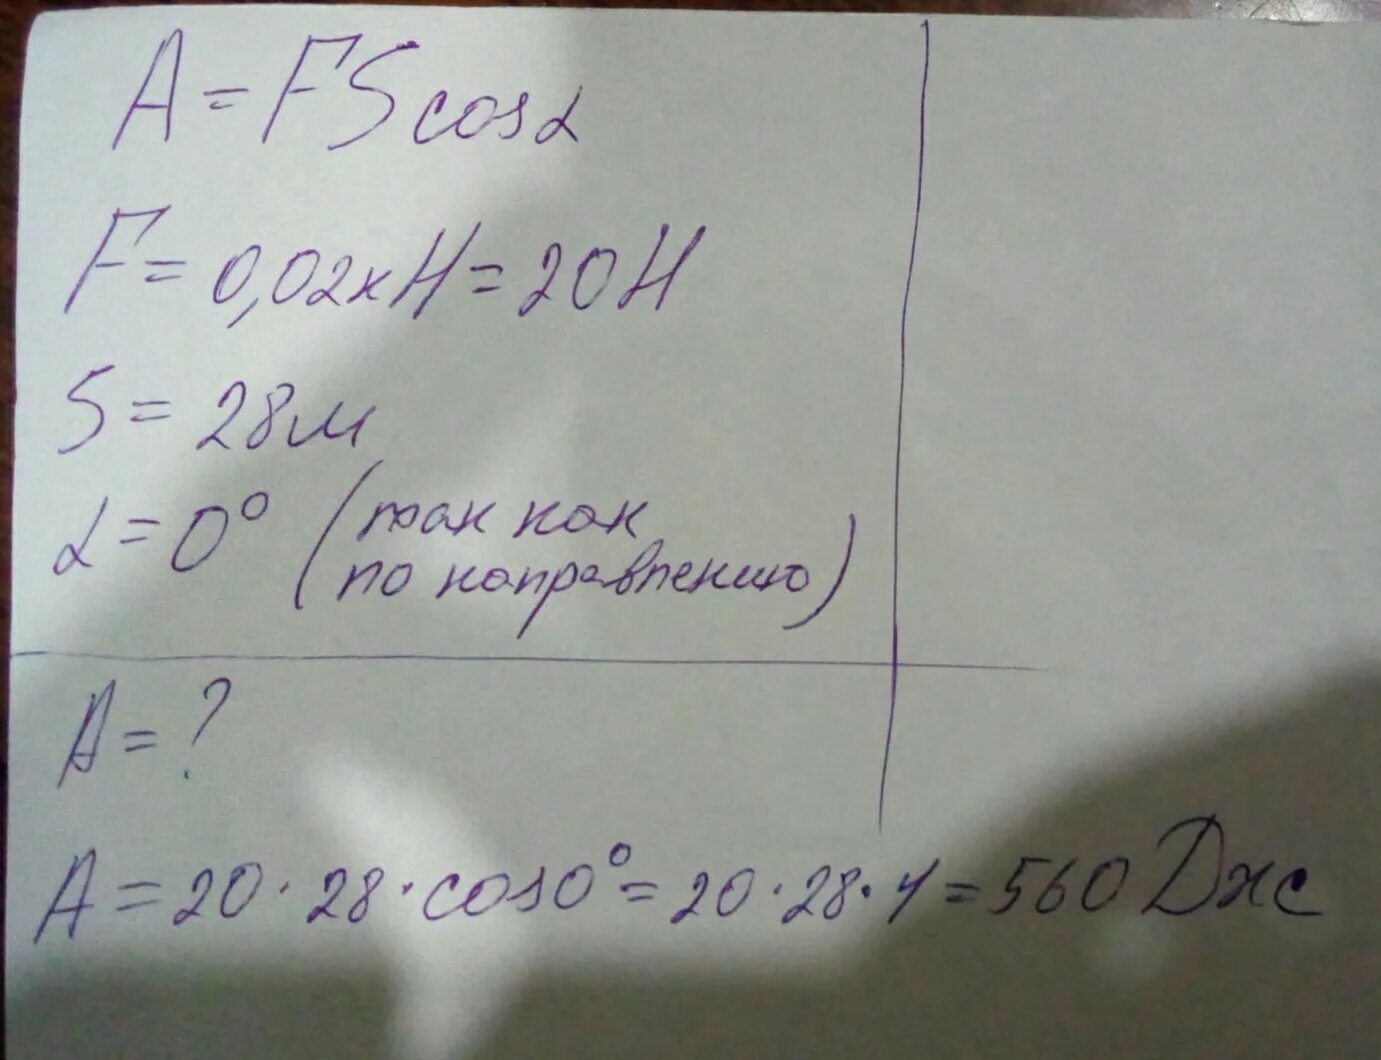 A = FS cosα
F = 0,02кН = 20Н
S = 28м
α = 0° (так как
по направлению)
A = ?
A = 20 · 28 · cos0° = 20 · 28 · 1 = 560 Дж